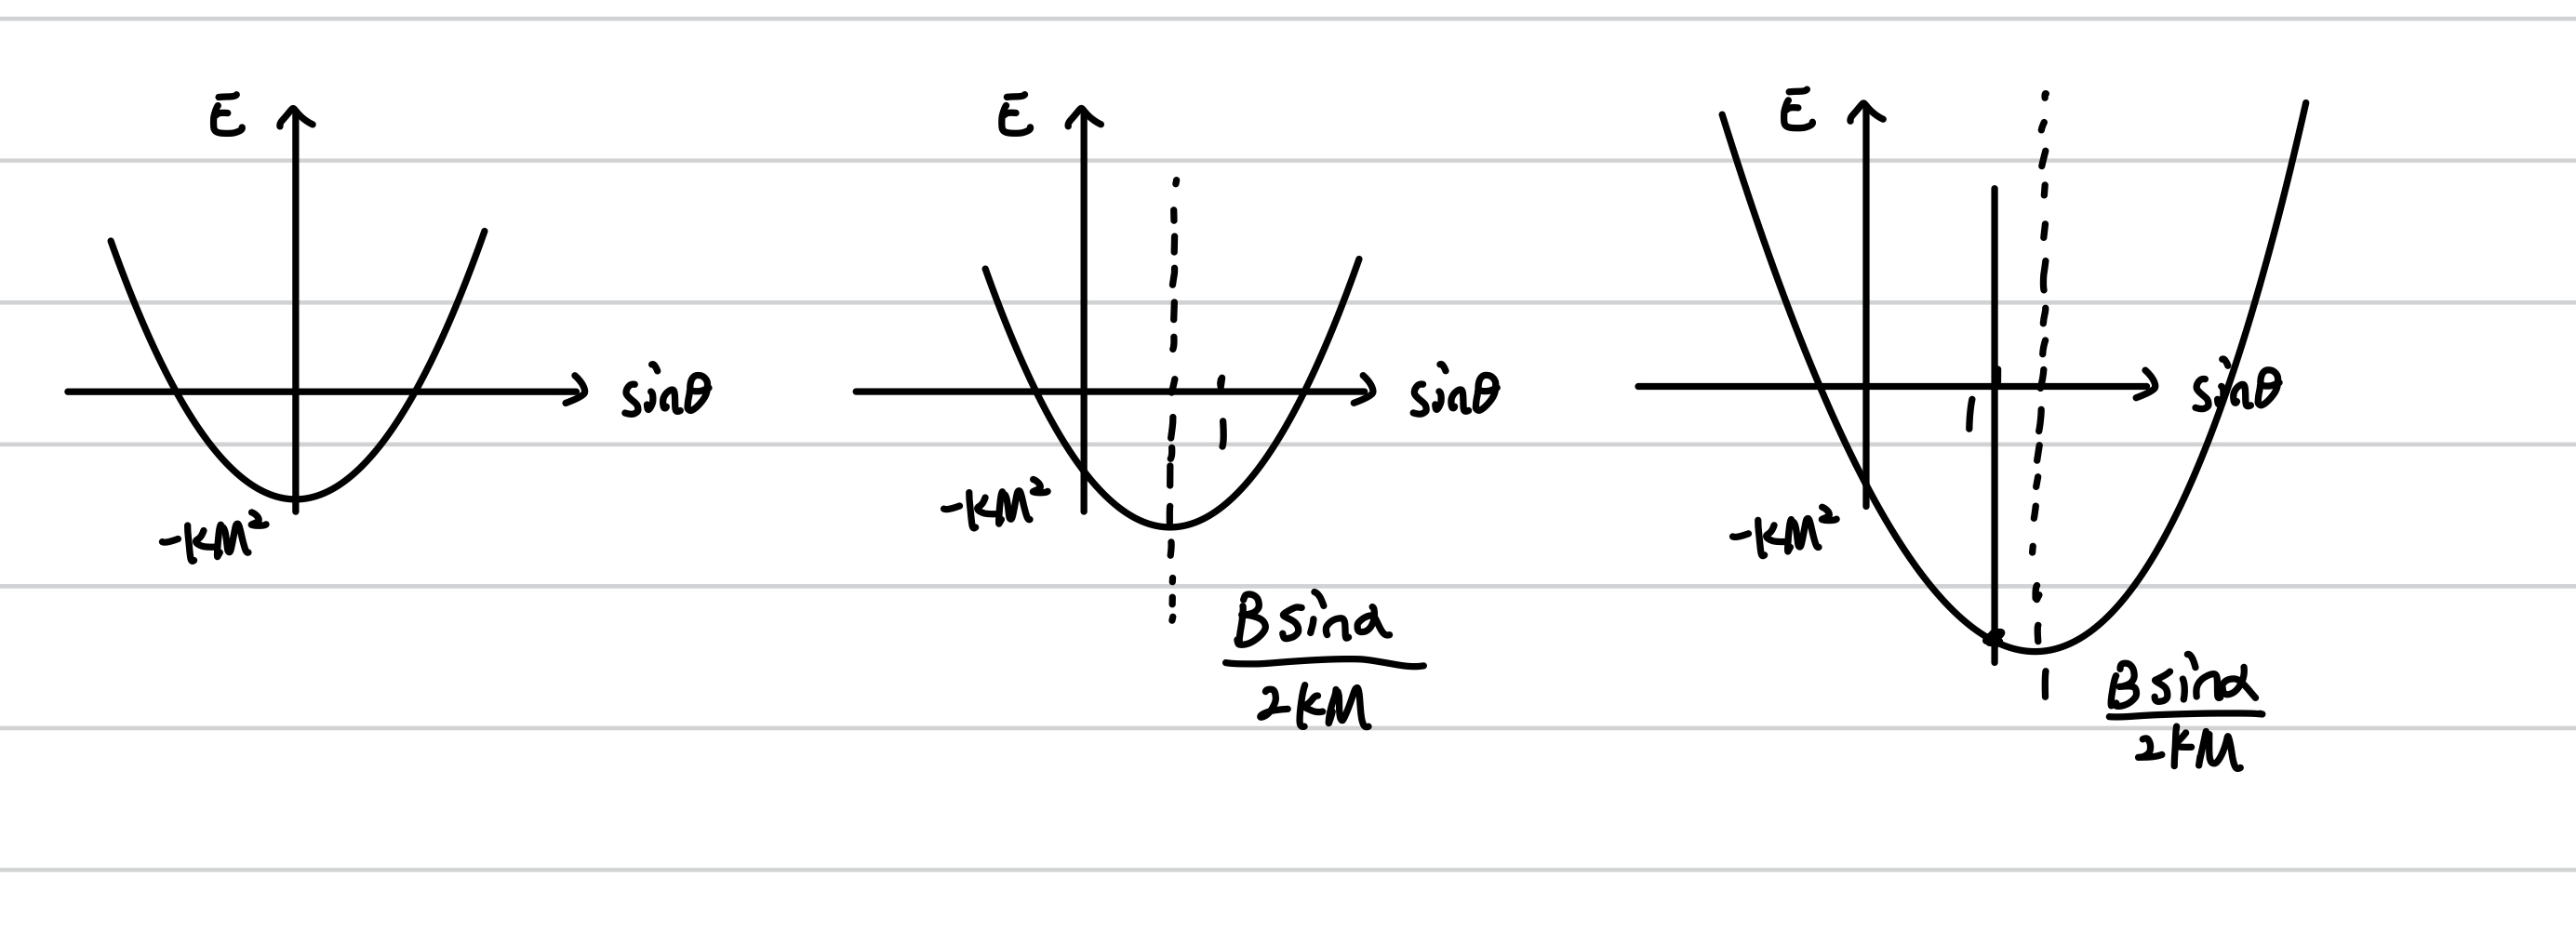 E
sinθ
-KM²
E
sinθ
1
-KM²
Bsinα
2KM
E
sinθ
1
-KM²
Bsinα
2KM